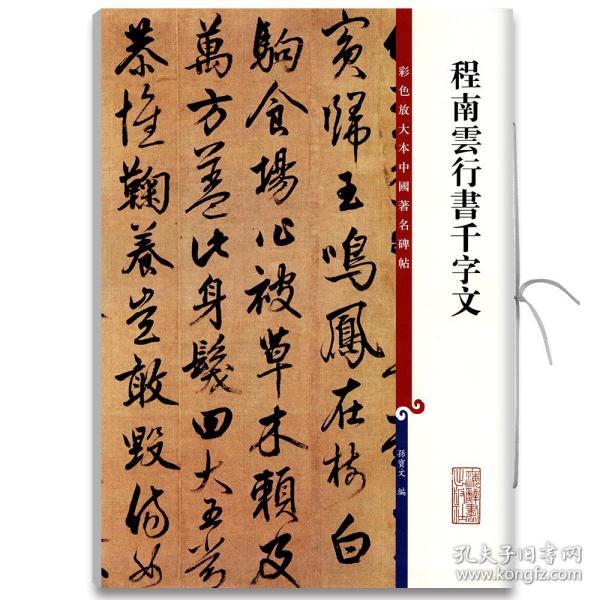 程南雲行書千字文
彩色放大本中國著名碑帖
孫寶文 編
賓歸王鳴鳳在樹白
駒食場化被草木賴及
萬方盖此身髮四大五常
恭惟鞠養豈敢毀傷女
孔夫子旧书网
www.kongfz.com